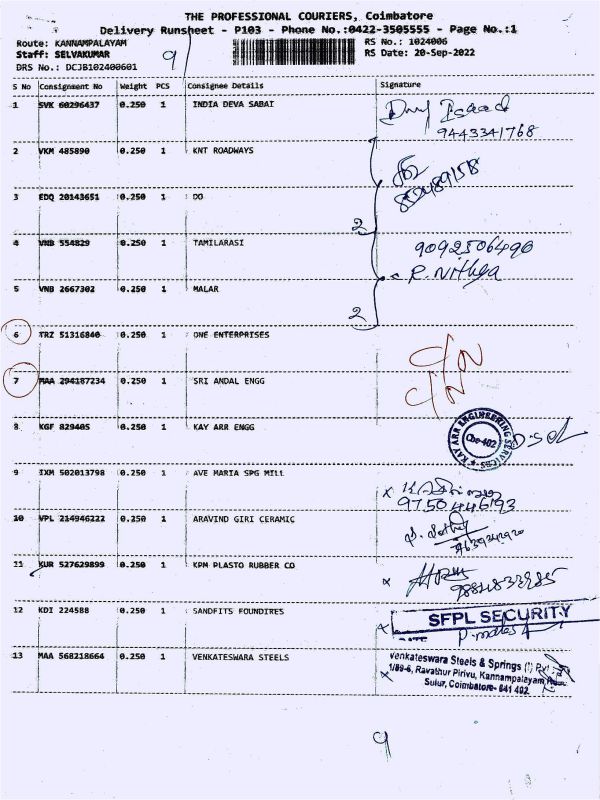 THE PROFESSIONAL COURIERS, Coimbatore
Delivery Runsheet - P103 - Phone No.:0422-3505555 - Page No.:1
Route: KANNAMPALAYAM RS No.: 1024006
Staff: SELVAKUMAR 9 RS Date: 20-Sep-2022
DRS No.: DCJB102400601
S No Consignment No Weight PCS Consignee Details Signature
1 SVK 60296437 0.250 1 INDIA DEVA SABAI
9443341768
2 VKM 485890 0.250 1 KNT ROADWAYS
852489158
3 EDQ 20143651 0.250 1 DO
2
4 VNB 554829 0.250 1 TAMILARASI 9092506490
R. Nithya
5 VNB 2667302 0.250 1 MALAR
2
6 TRZ 51316840 0.250 1 ONE ENTERPRISES
7 MAA 294187234 0.250 1 SRI ANDAL ENGG
8 KGF 829405 0.250 1 KAY ARR ENGG
KAY ARR ENGINEERING SERVICES Cbe-402
9 IXM 502013798 0.250 1 AVE MARIA SPG MILL
9750446193
10 VPL 214946222 0.250 1 ARAVIND GIRI CERAMIC
11 KUR 527629899 0.250 1 KPM PLASTO RUBBER CO
12 KDI 224588 0.250 1 SANDFITS FOUNDIRES SFPL SECURITY
DATE
13 MAA 568218664 0.250 1 VENKATESWARA STEELS Venkateswara Steels & Springs (I) Pvt
1/89-6, Ravathur Pirivu, Kannampalayam
Sulur, Coimbatore- 641 402
9